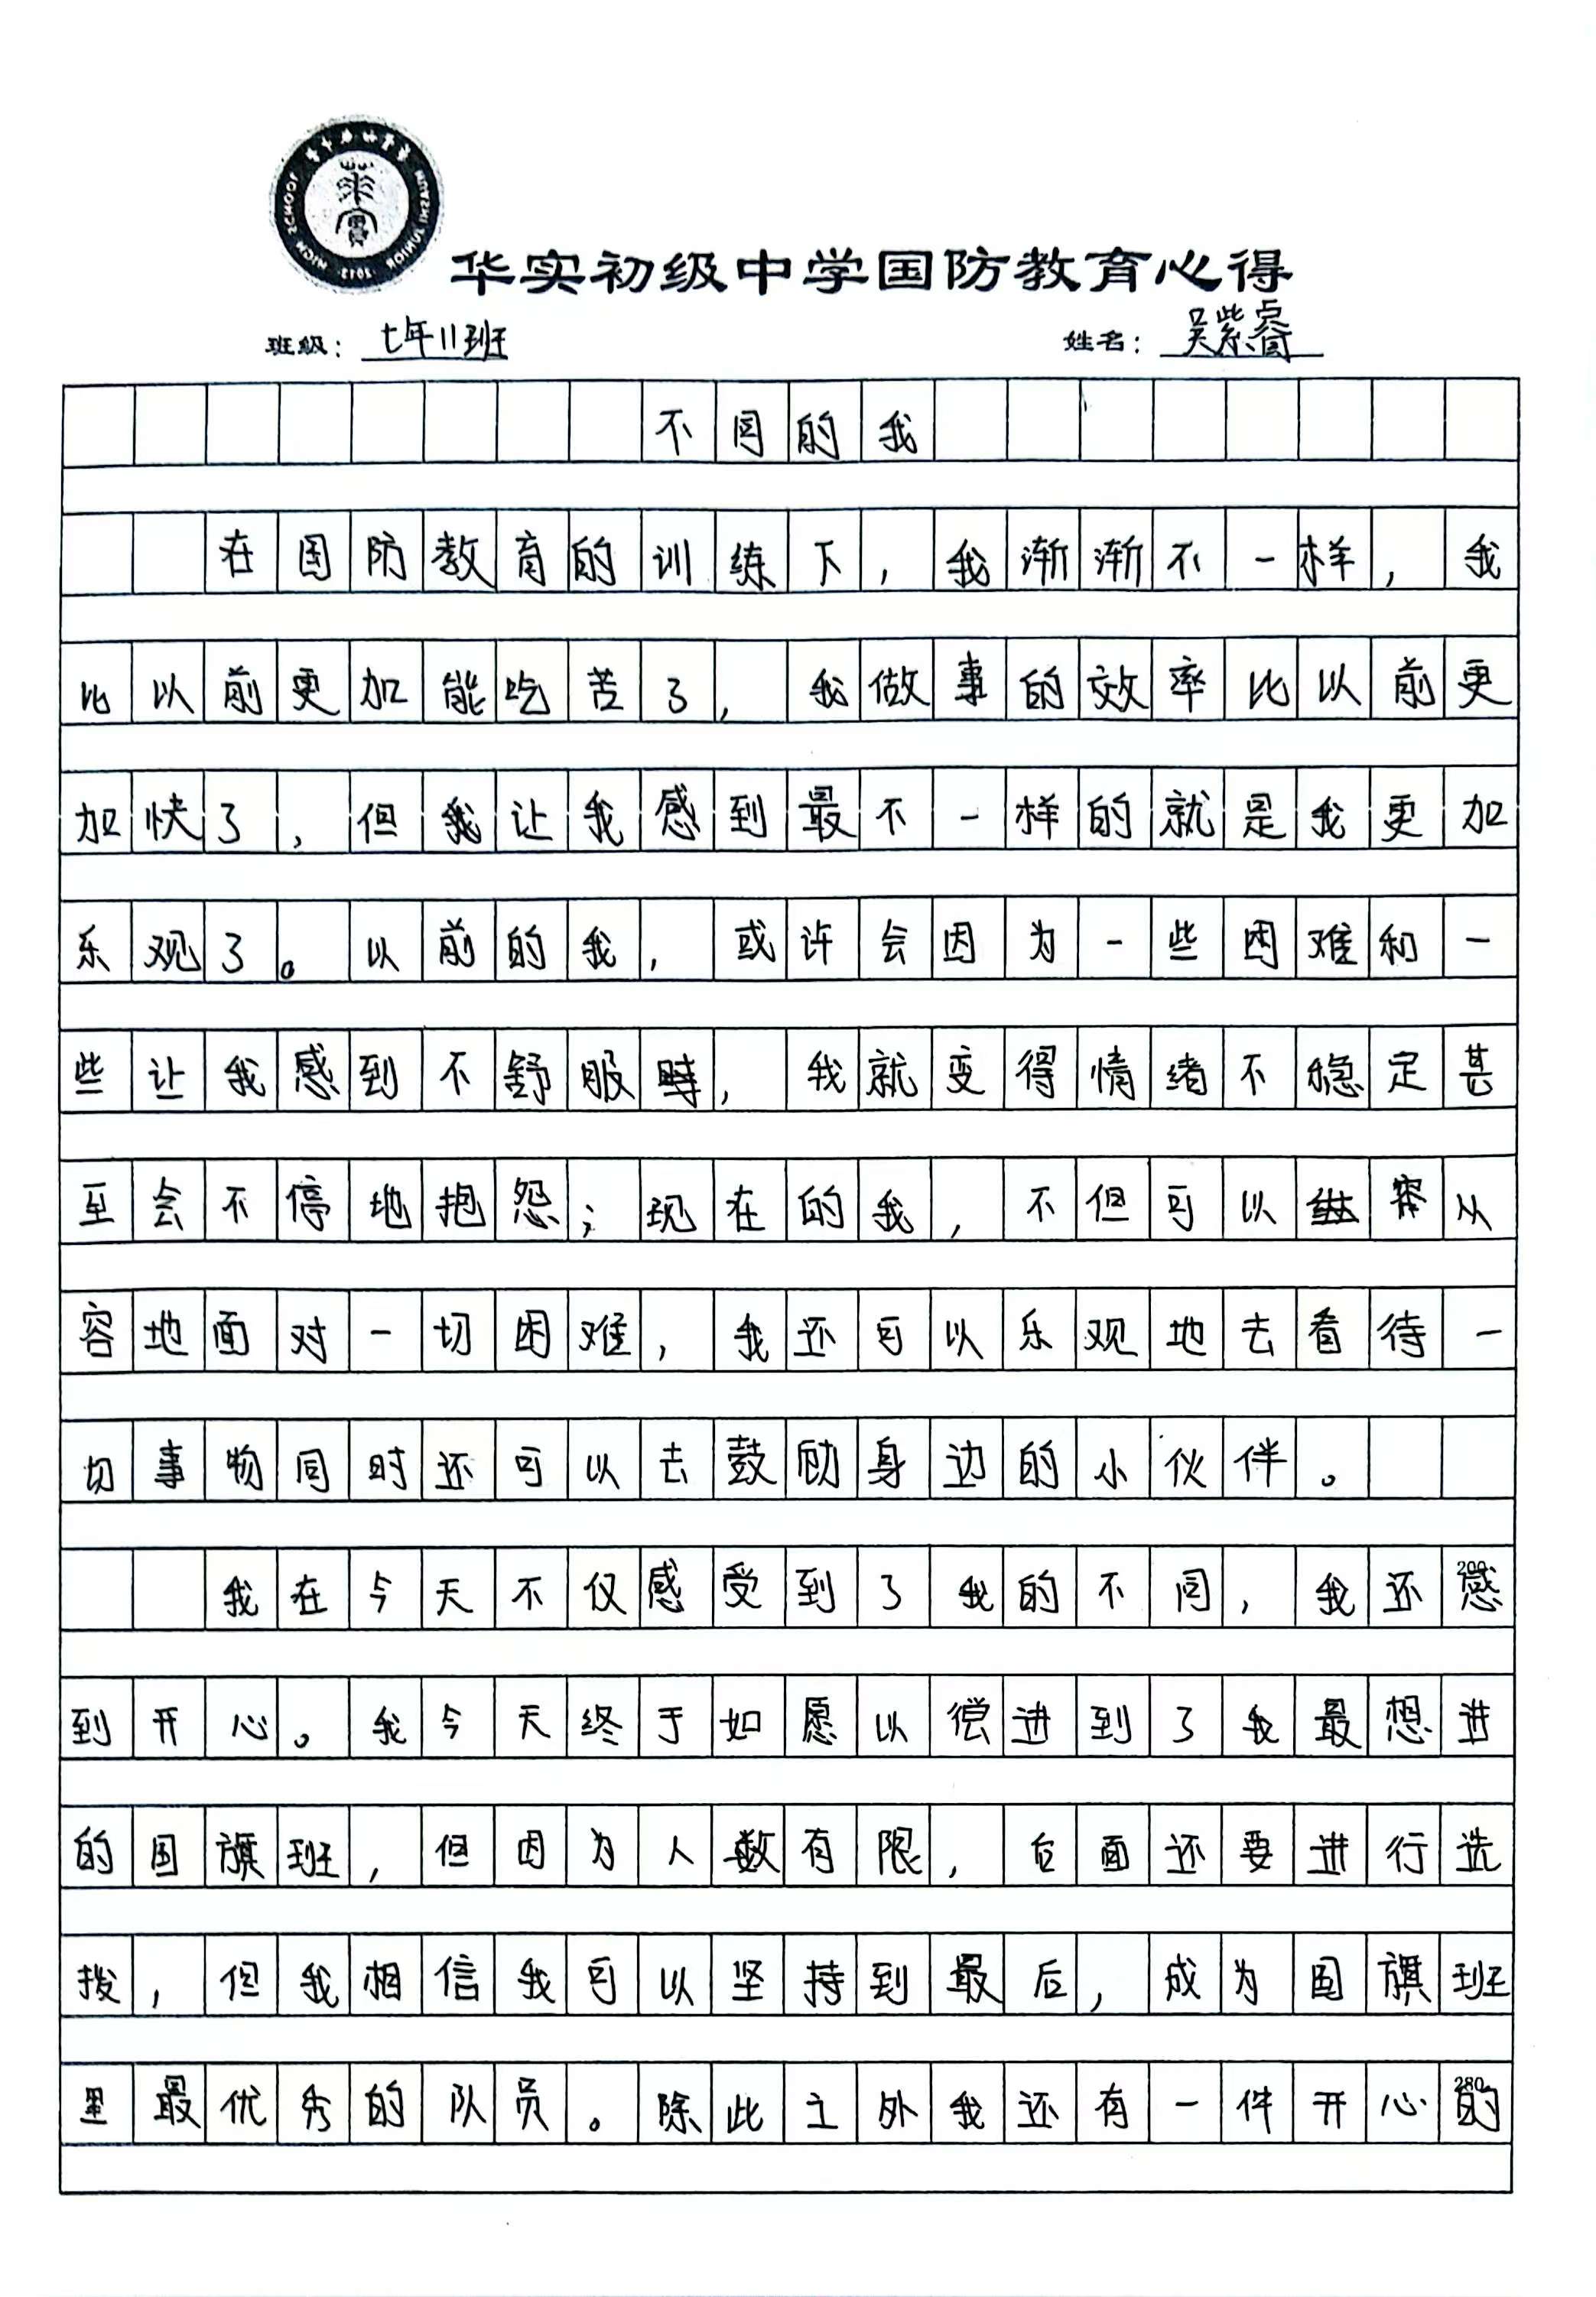 华实初级中学国防教育心得
班级：七年11班 姓名：吴紫睿
不同的我
在国防教育的训练下，我渐渐不一样，我
比以前更加能吃苦了，我做事的效率比以前更
加快了，但我让我感到最不一样的就是我更加
乐观了。以前的我，或许会因为一些困难和一
些让我感到不舒服时，我就变得情绪不稳定甚
至会不停地抱怨；现在的我，不但可以从
容地面对一切困难，我还可以乐观地去看待一
切事物同时还可以去鼓励身边的小伙伴。
我在今天不仅感受到了我的不同，我还感
200
到开心。我今天终于如愿以偿进到了我最想进
的国旗班，但因为人数有限，后面还要进行选
拨，但我相信我可以坚持到最后，成为国旗班
里最优秀的队员。除此之外我还有一件开心的
280